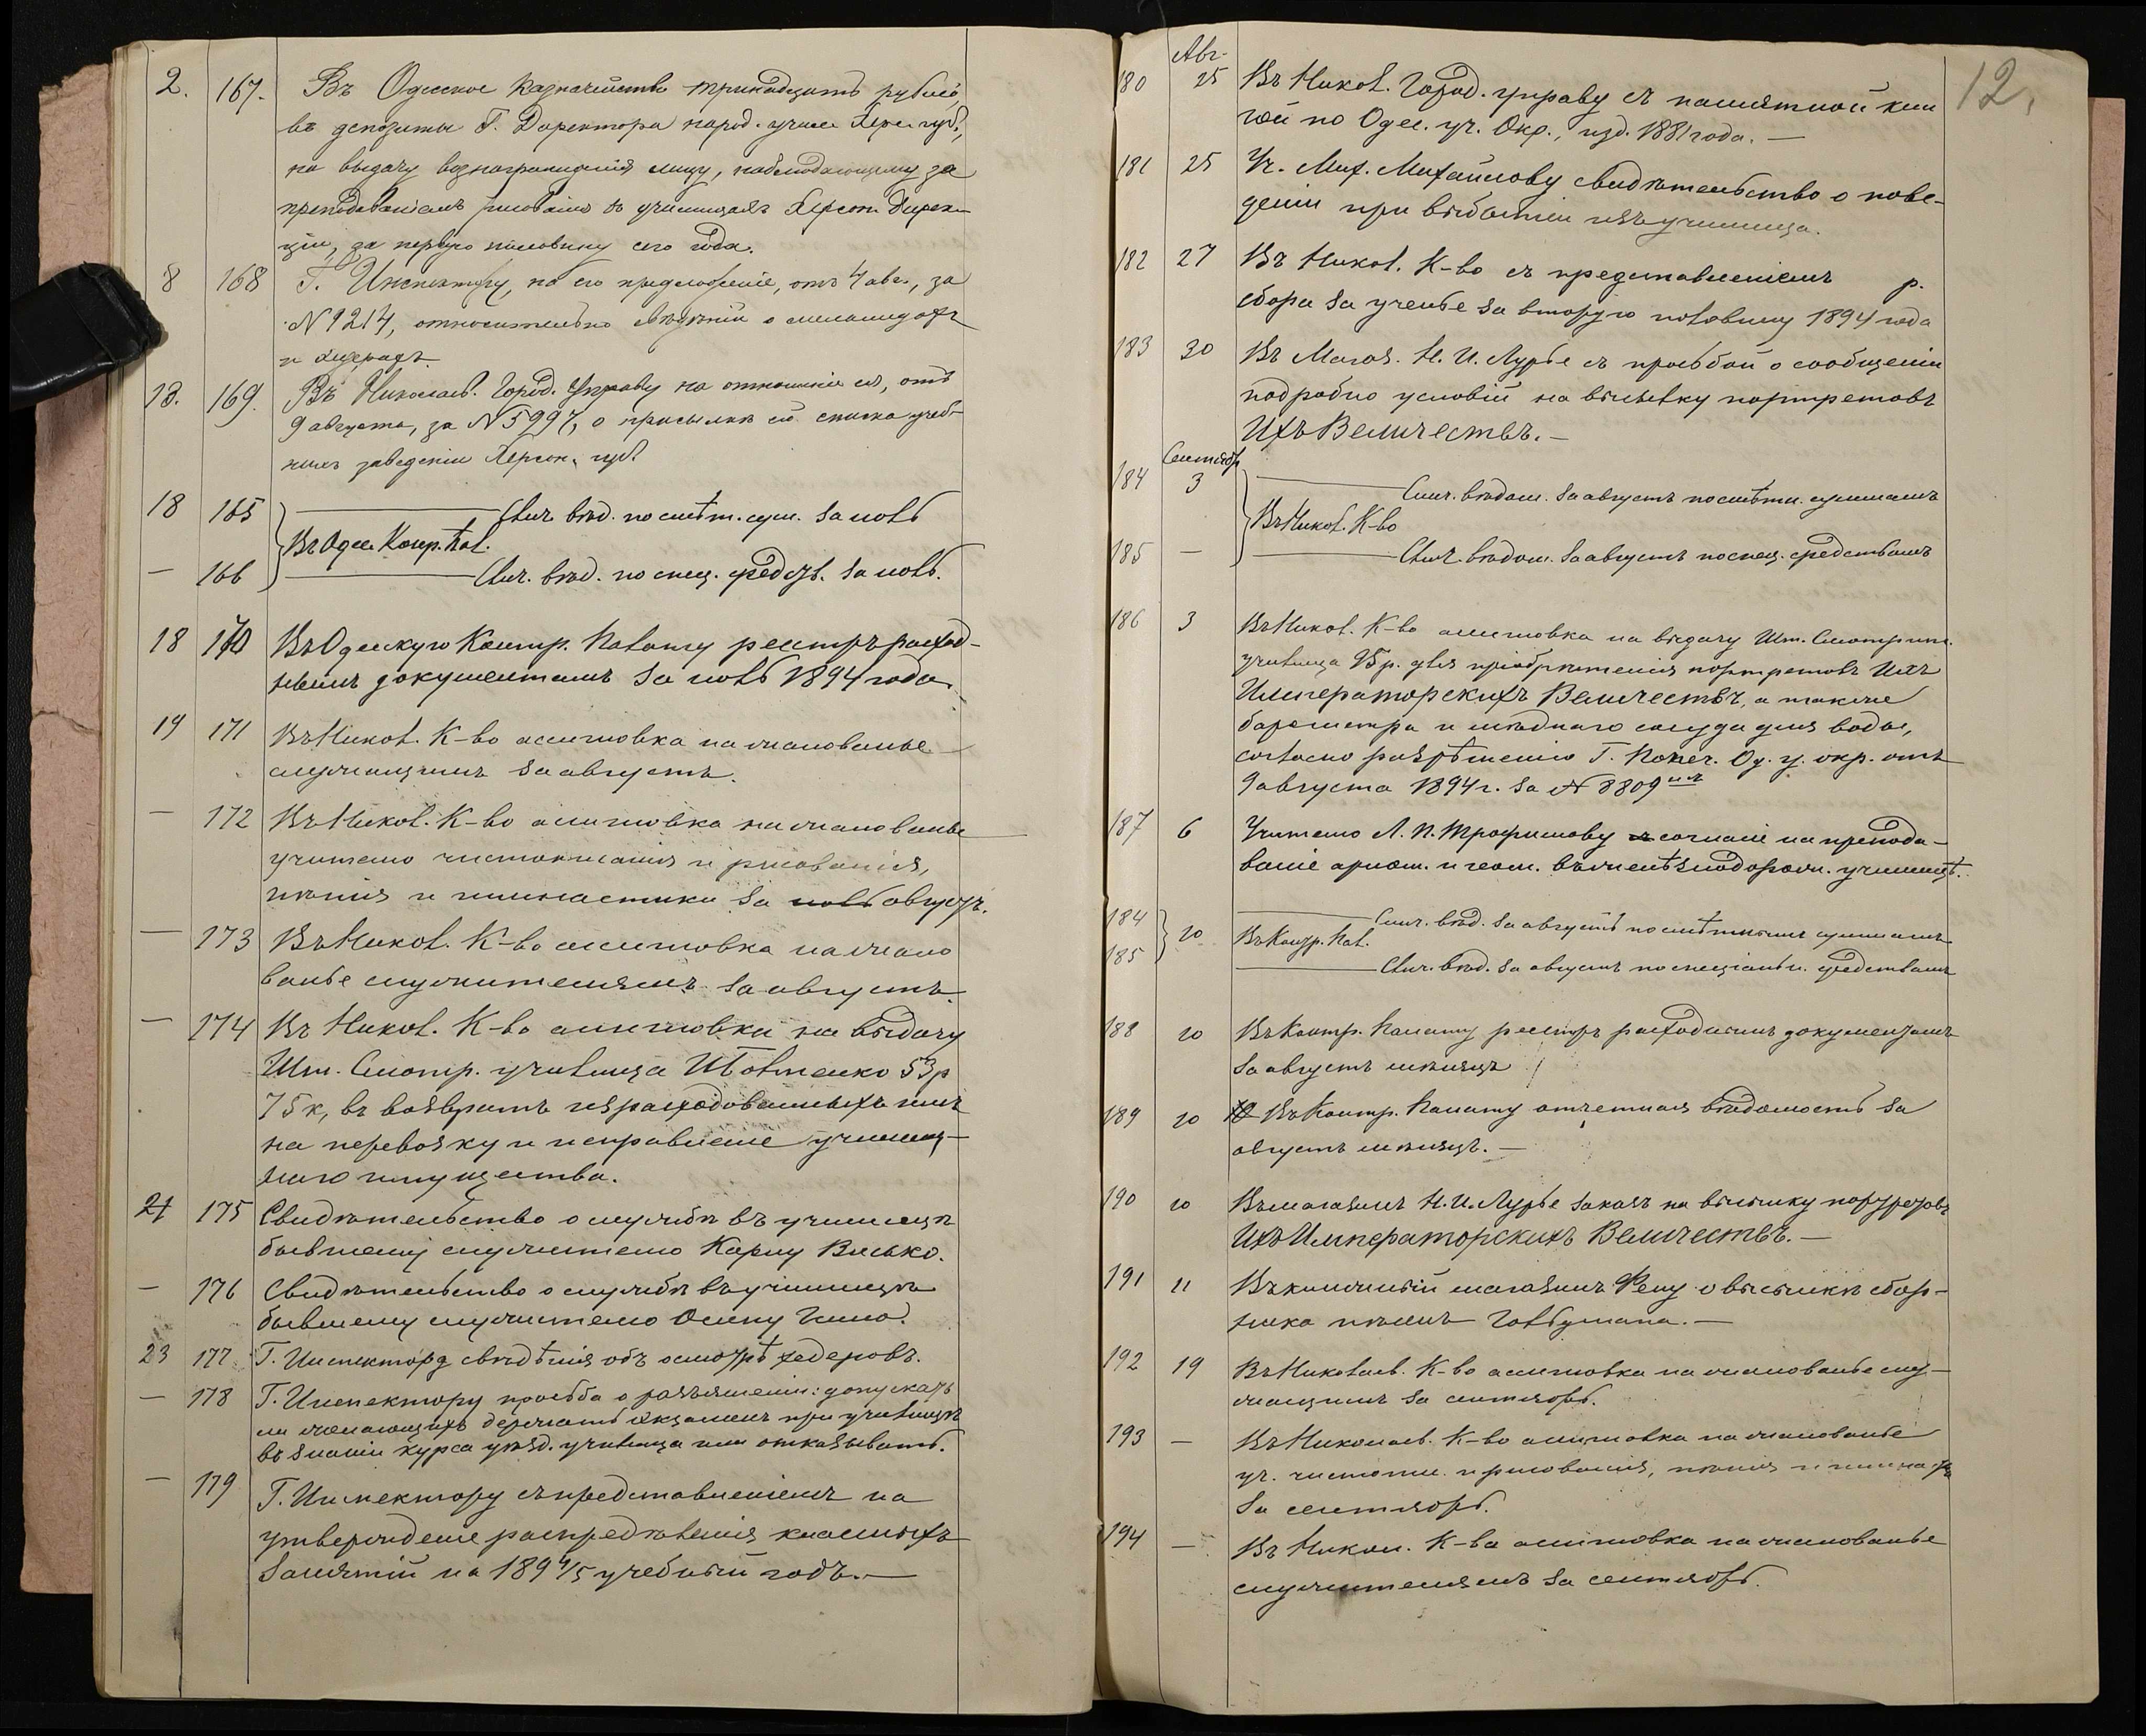 2. 167. Въ Одесское Казначейство тринадцать рублей
въ депозиты Г. Директора народ. учил. Херс. губ.,
на выдачу вознагражденія лицу, наблюдающему за
преподаваніемъ рисованія въ училищахъ Херсон. Дирек-
ціи, за первую половину сего года.
8 168 Г. Инспектору, на его предложеніе, отъ 4 авг., за
№ 1214, относительно свѣдѣній о меламидахъ
и хедерахъ.
13. 169. Въ Николаев. Город. Управу на отношеніе ея, отъ
9 августа, за № 5997, о присылкѣ ей списка учеб-
ныхъ заведеній Херсон. губ.
18 165 Слич. вѣд. по смѣт. сум. за іюль
Въ Одес. Контр. Пал.
— 166 Слич. вѣд. по спец. средств. за іюль.
18 170 Въ Одесскую Контр. Палату реестръ расход-
нымъ документамъ за іюль 1894 года.
19 171 Въ Никол. К-во ассигновка на жалованье
служащимъ за августъ.
— 172 Въ Никол. К-во ассигновка на жалованье
учителю чистописанія и рисованія,
пѣнія и гимнастики за іюль августъ.
— 173 Въ Никол. К-во ассигновка на жало
ванье служителямъ за августъ.
— 174 Въ Никол. К-во ассигновки на выдачу
Шт. Смотр. училища 53 р
75 к, въ возвратъ израсходованныхъ имъ
на перевозку и исправленіе училищ-
наго имущества.
21 175 Свидѣтельство о службѣ въ училищѣ
бывшему служителю Карпу Васько.
— 176 Свидѣтельство о службѣ въ училищѣ
бывшему служителю Осипу
23 177 Г. Инспектору свѣдѣнія объ осмотрѣ хедеровъ.
— 178 Г. Инспектору просьба о разъясненіи: допускать
ли желающихъ держать экзаменъ при училищѣ
въ знаніи курса уѣзд. училища или отказывать.
— 179 Г. Инспектору съ представленіемъ на
утвержденіе распредѣленія классныхъ
занятій на 1894/5 учебный годъ. —
12.
Авг.
180 25 Въ Никол. Город. управу съ памятной кни
гой по Одес. уч. Окр., изд. 1881 года. —
181 25 Уч. Мих. Михайлову свидѣтельство о пове-
деніи при выбытіи изъ училища.
182 27 Въ Никол. К-во съ представленіемъ р.
сбора за ученье за вторую половину 1894 года
183 30 Въ Магаз. Н. И. Лурье съ просьбой о сообщеніи
подробно условій на высылку портретовъ
Ихъ Величествъ. —
Сентябр
184 3 Слич. вѣдом. за августъ по смѣтн. суммамъ
Въ Никол. К-во
185 — Слич. вѣдом. за августъ по спец. средствамъ
186 3 Въ Никол. К-во ассигновка на выдачу Шт. Смотрит.
училища р. для пріобрѣтенія портретовъ Ихъ
Императорскихъ Величествъ, а также
барометра и мѣднаго сосуда для воды,
согласно разрѣшенію Г. Попеч. Од. у. окр. отъ
9 августа 1894 г. за № 8809
187 6 Учителю Л. П. Трофимову согласіе на препода-
ваніе ариѳм. и геом. въ желѣзнодорожн. училищѣ.
184 Слич. вѣд. за августъ по смѣтнымъ суммамъ
10 Въ Контр. Пал.
185 Слич. вѣд. за августъ по спеціальн. средствамъ
188 10 Въ Контр. Палату реестръ расходнымъ документамъ
за августъ мѣсяцъ
189 10 Въ Контр. Палату отчетная вѣдомость за
августъ мѣсяцъ. —
190 10 Въ магазинъ Н. И. Лурье заказъ на высылку портретовъ
Ихъ Императорскихъ Величествъ. —
191 11 Въ книжный магазинъ о высылкѣ сбор-
ника пѣсенъ Гольбумана. —
192 19 Въ Николаев. К-во ассигновка на жалованье слу-
жащимъ за сентябрь.
193 — Въ Николаев. К-во ассигновка на жалованье
уч. чистопис. и рисованія, пѣнія и гимнаст.
за сентябрь.
194 — Въ Никол. К-во ассигновка на жалованье
служителямъ за сентябрь.